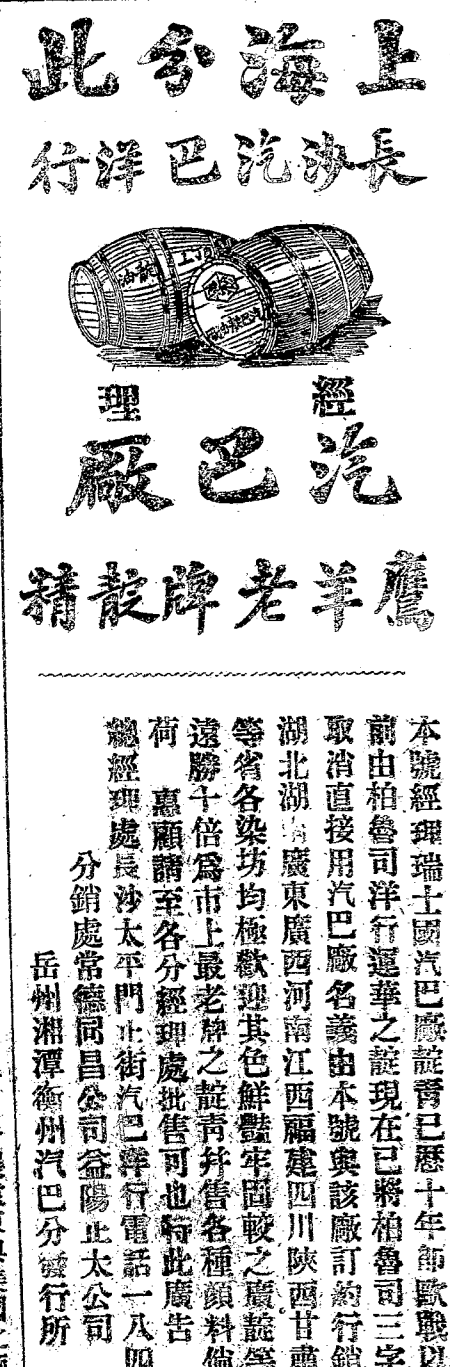 上海分此
長沙汽巴洋行
經理
汽巴廠
鷹羊老牌散精
本號經理瑞士國汽巴廠靛靑已歷十年節歐戰以
前由柏魯司洋行運華之靛現在已將柏魯司三字
取消直接用汽巴廠名義由本號與該廠訂約行銷
湖北湖南廣東廣西河南江西福建四川陝西甘肅
等省各染坊均極歡迎其色鮮豔牢固較之廣靛等
遠勝十倍爲市上最老牌之靛靑幷售各種顔料倘
荷 惠顧請至各分經理處批售可也特此廣告
總經理處長沙太平門正街汽巴洋行電話一八四
分銷處常德同昌公司益陽正太公司
岳州湘潭衡州汽巴分發行所